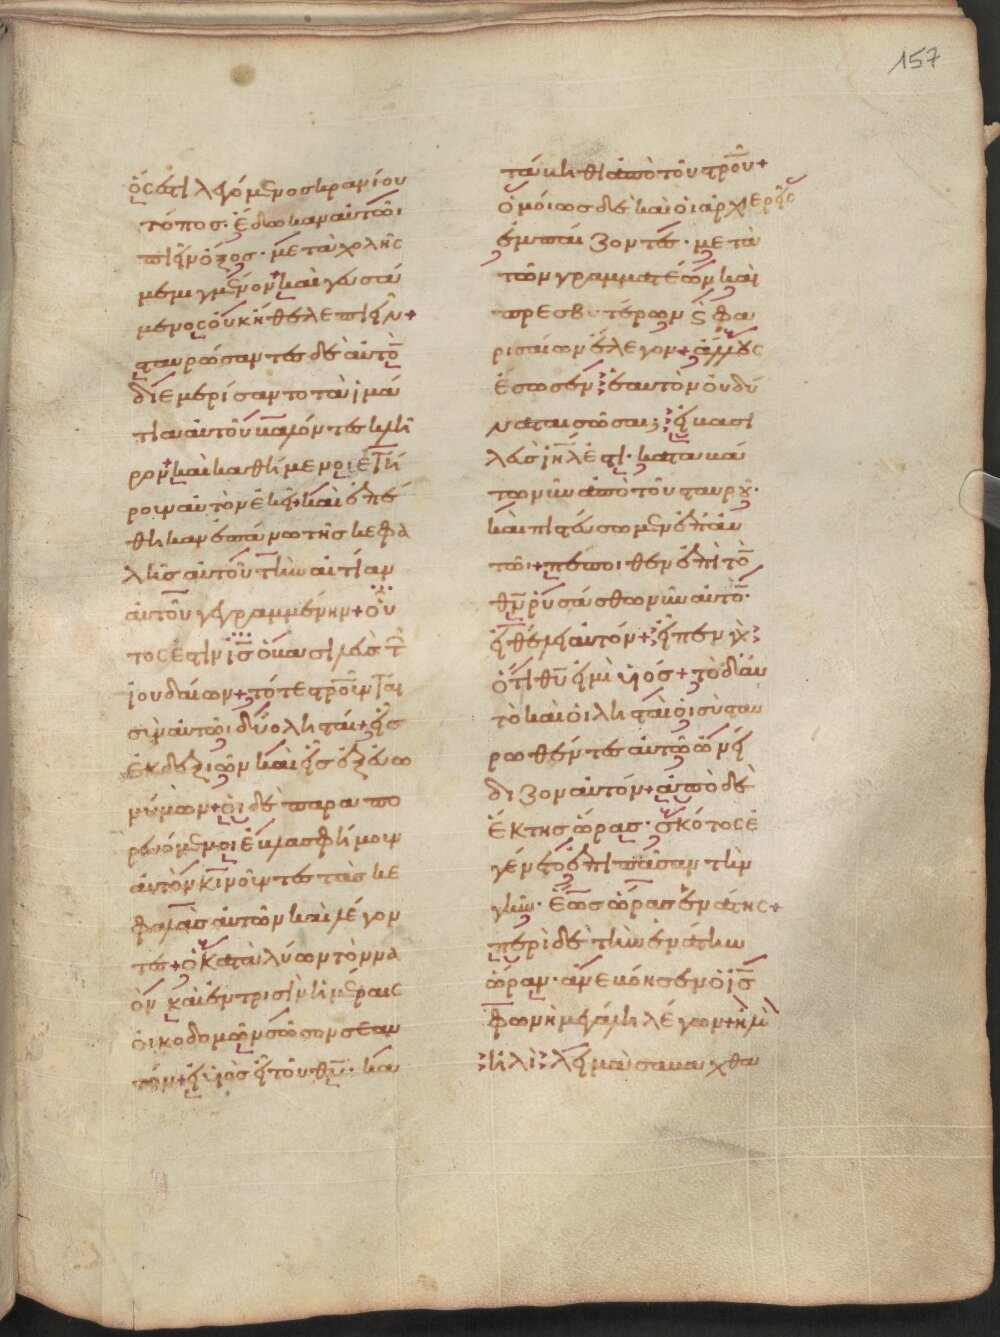 157
ὅς ἐστι λεγόμενος κρανίου
τόπος· ἔδωκαν αὐτῶι
πιεῖν ὄξος· μετὰ χολῆς
μεμιγμένον καὶ γευσά
μενος οὐκ ἤθελε πιεῖν+
σταυρώσαντες δὲ αὐτὸ
διεμερίσαντο τὰ ἱμά
τια αὐτοῦ βαλόντες κλῆ
ρον+ καὶ καθήμενοι ἐτή
ρουν αὐτὸν ἐκεῖ+ καὶ ἐπέ
θηκαν ἐπάνω τῆς κεφα
λῆς αὐτοῦ τὴν αἰτίαν
αὐτοῦ γεγραμμένην+ οὗ
τος ἐστιν ἰς ὁ βασιλεὺς τ
ἰουδαίων+ τότε στροῦνται
σὺν αὐτῶι δύο λησταί+ εἷς
ἐκ δεξιῶν καὶ εἷς ἐξ εὐω
νύμων+ οἱ δὲ παραπο
ρευόμενοι ἐβλασφήμουν
αὐτὸν κινοῦντες τὰς κε
φαλὰς αὐτῶν καὶ λέγον
τες+ ὁ καταλύων τὸν να
ὸν καὶ ἐν τρισὶν ἡμέραις
οἰκοδομῶν σῶσον σεαυ
τόν+ εἰ υἱὸς εἶ τοῦ θυ· κα
τάβηθι ἀπὸ τοῦ στροῦ+
ὁμοίως δὲ καὶ οἱ ἀρχιερεῖς
ἐμπαίζοντες· μετὰ
τῶν γραμματέων καὶ
πρεσβυτέρων ϛ φα
ρισαίων ἔλεγον+ ἄλλους
ἔσωσεν ἑαυτὸν οὐ δύ
ναται σῶσαι; εἰ βασι
λεὺς ιηλ ἐστι· καταβά
τω νῦν ἀπὸ τοῦ σταυροῦ·
καὶ πιστεύσωμεν ἐπ' αὐ
τῶι+ πέποιθεν ἐπὶ τὸ
θν ῥυσάσθω νῦν αὐτὸ·
εἰ θέλει αὐτόν+ εἶπεν γὰρ
ὅτι θυ εἰμὶ υἱός+ τὸ δ' αὐ
τὸ καὶ οἱ λησταὶ οἱ συσταυ
ρωθέντες αὐτῶ ὠνεί
διζον αὐτόν+ ἀπὸ δὲ
ἕκτης ὥρας· σκότος ἐ
γένετο ἐπὶ πᾶσαν τὴν
γῆν· ἕως ὥρας ἐνάτης+
περὶ δὲ τὴν ἐνάτην
ὥραν· ἀνεβόησεν ὁ ἰς
φωνῆ μεγάλη λέγων+ ἠλὶ
ἠλὶ λειμὰ σαβαχθα